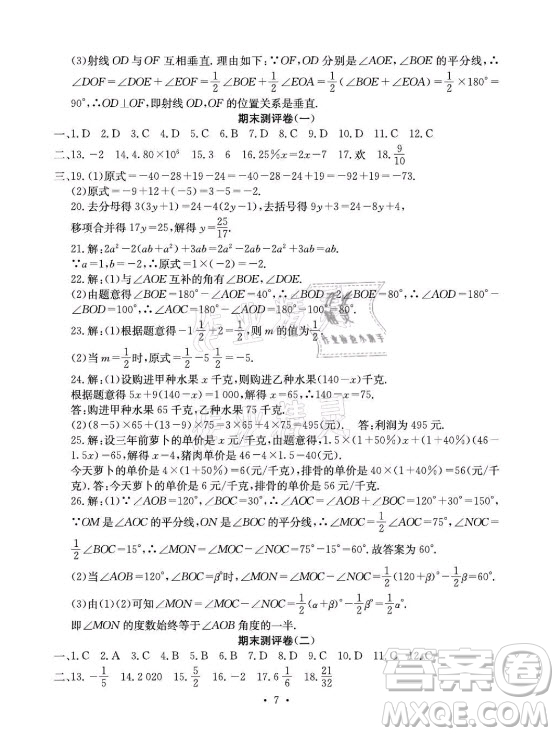 (3)射线OD与OF互相垂直.理由如下:∵OF,OD分别是∠AOE,∠BOE的平分线,∴
∠DOF=∠DOE+∠EOF=1/2∠BOE+1/2∠EOA=1/2(∠BOE+∠EOA)=1/2×180°=
90°,∴OD⊥OF,即射线OD,OF的位置关系是垂直.
期末测评卷(一)
一、1.D 2.A 3.C 4.D 5.D 6.B 7.D 8.D 9.B 10.D 11.D 12.C
二、13.-2 14.4.80×10⁵ 15.3 6 16.25%x=20 17.欢 18.9/10
三、19.(1)原式=-40-28+19-24=-40-28-24+19=-92+19=-73.
(2)原式=-9-2÷1/2=-9-4=-13.
20.去分母得3(3y+1)=24-4(2y-1),去括号得9y+3=24-8y+4,
移项合并得17y=25,解得y=25/17.
21.解:2a²-2(ab+a²)+3ab=2a²-2ab-2a²+3ab=ab.
∵a=1,b=-2,∴原式=1×(-2)=-2.
22.解:(1)与∠AOE互补的角有∠BOE,∠DOE.
(2)由题意得∠BOE=180°-∠AOE=40°,∴∠BOD=2∠BOE=80°,∴∠AOD=180°-
∠BOD=100°,∴∠AOC=180°-∠AOD=180°-100°=80°.
23.解:(1)根据题意得-1 1/2+2=1/2,则m的值为1/2.
(2)当m=1/2时,原式=-5 1/2=-5.5.
24.解:(1)设购进甲种水果x千克,则购进乙种水果(140-x)千克.
根据题意得5x+9(140-x)=1000,解得x=65,∴140-x=75.
答:购进甲种水果65千克,乙种水果75千克.
(2)(8-5)×65+(13-9)×75=3×65+4×75=495(元). 答:利润为495元.
25.解:设三年前萝卜的单价是x元/千克,由题意得4×(1+50%)x+2×(1+100%)(46-
1.5x)=82,解得x=4.猪肉的单价是46-1.5×4=40(元/千克).
今天萝卜的单价是4×(1+50%)=6(元/千克),排骨的单价是40×(1+40%)=56(元/千克).
答:今天萝卜的单价是6元/千克,排骨的单价是56元/千克.
26.解:(1)∵∠AOB=120°,∠BOC=30°,∴∠AOC=∠AOB+∠BOC=150°.
∵OM是∠AOC的平分线,ON是∠BOC的平分线,∴∠MOC=1/2∠AOC=75°,∠NOC=
1/2∠BOC=15°,∴∠MON=∠MOC-∠NOC=75°-15°=60°.故答案为60°.
(2)当∠AOB=120°,∠BOC=β°时,∠MON=∠MOC-∠NOC=1/2(120+β)°-1/2β°=60°.
(3)由(1)(2)可知∠MON=∠MOC-∠NOC=1/2(α+β)°-1/2β°=1/2α°.
即∠MON的度数始终等于∠AOB角度的一半.
期末测评卷(二)
一、1.C 2.A 3.C 4.C 5.B 6.B 7.C 8.D 9.D 10.A
二、13.-1/5 14.2 020 15.5/2 16.-2 17.6 1/6 18.21/32
· 7 ·
答案圈
MXQE.COM